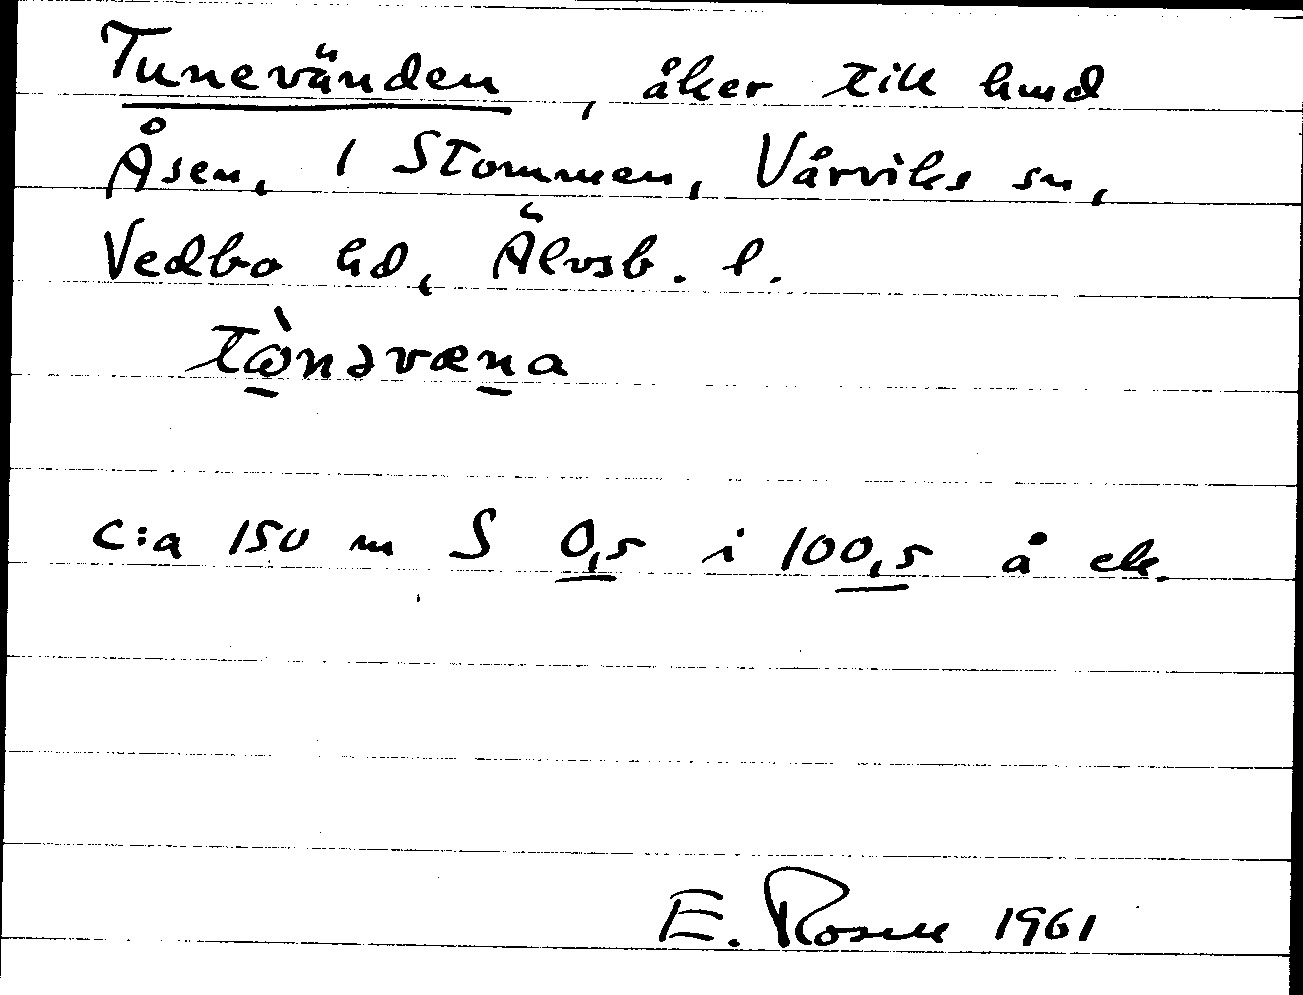 Tunevänden, åker till hmd
Åsen, 1 Stommen, Vårviks sn,
Vedbo hd, Älvsb. l.
c:a 150 m S 0,5 i 100,5 å ek.
E. Rosell 1961